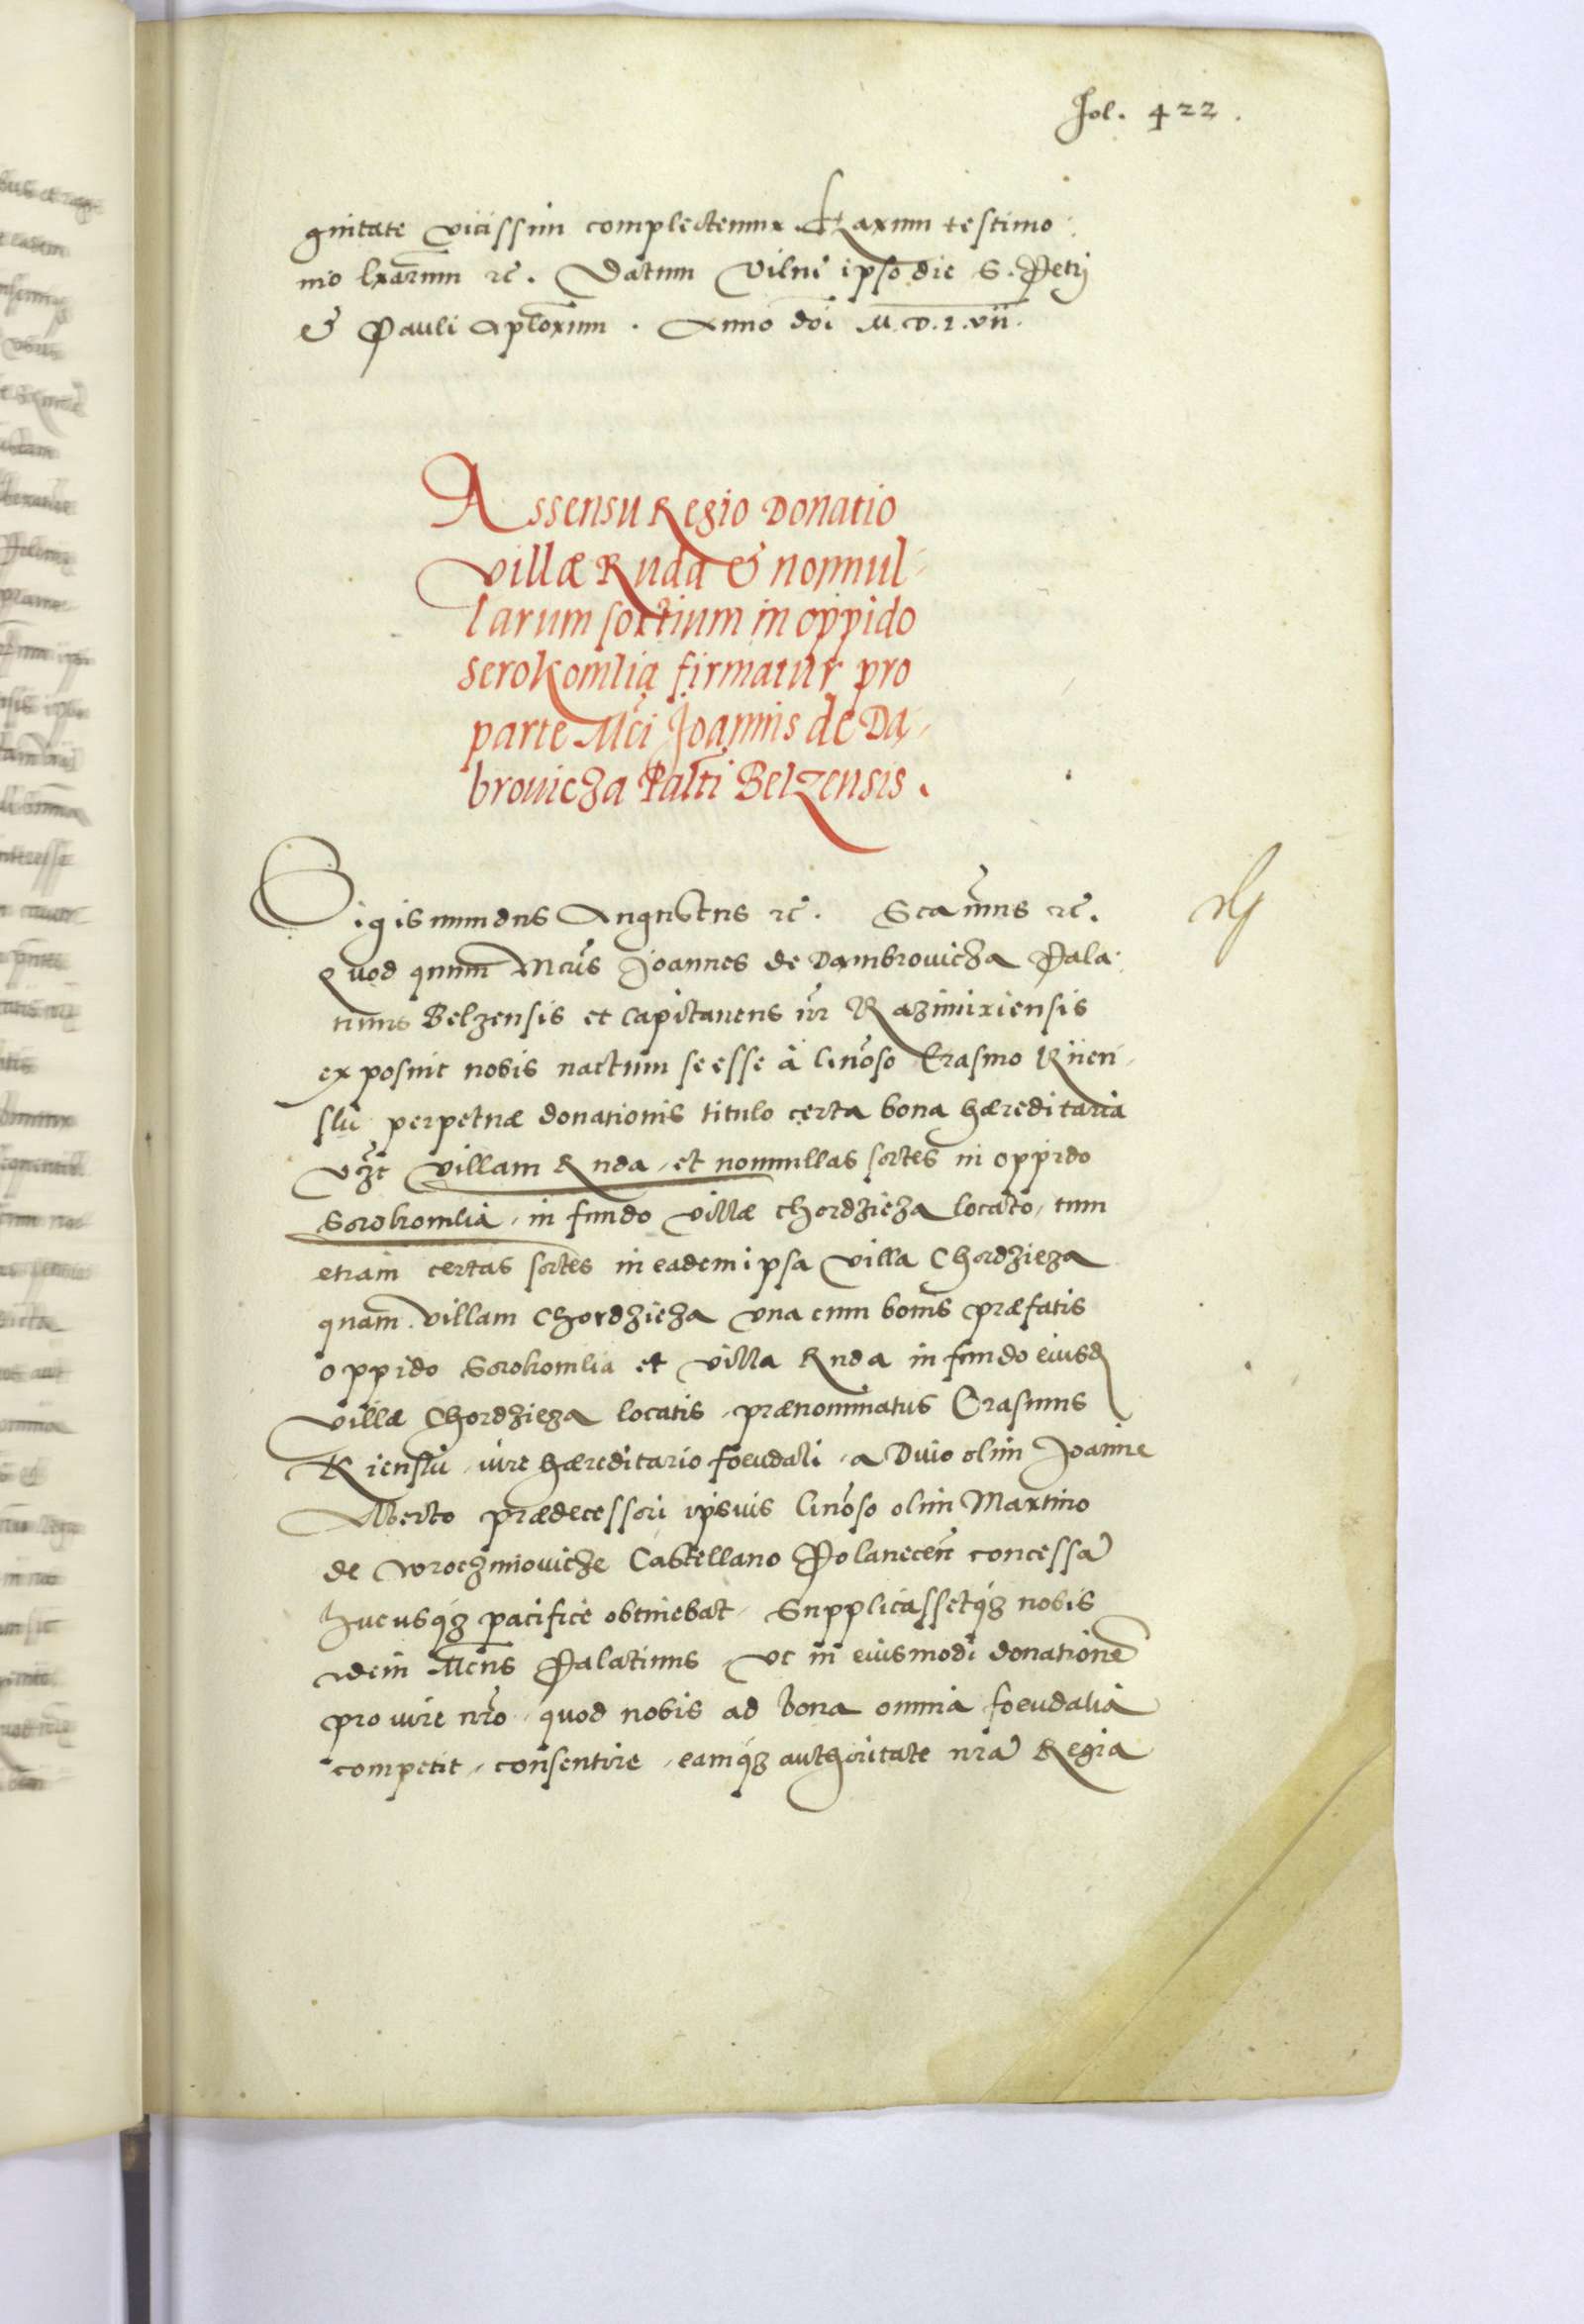 fol. 422.
gnitate vicissim complectemur. Harum testimo:
nio lrarum &c. Datum Vilne ipso die S. Petri
& Pauli Aplorum. Anno doi M.D.L.vii.
Assensu Regio Donatio
villæ Ruda & nonnul-
larum sortium in oppido
Serokomlia firmatur pro
parte Mci Joannis de Dą-
browicza Palti Belzensis.
Sigismundus Augustus &c. Scamus &c.
Quod quum Mcus Joannes de Dambrowicza Pala:
tinus Belzensis et Capitaneus nr Kazimiriensis
exposuit nobis nactum se esse à Genoso Erasmo Kijen-
ski perpetuæ donationis titulo certa bona hæreditaria
vzt villam Ruda, et nonnullas sortes in oppido
Sorokomlia, in fundo villæ Chordzieza locato, tum
etiam certas sortes in eadem ipsa villa Chordzieza
quam villam Chordzieza una cum bonis præfatis
oppido Sorokomlia et villa Ruda in fundo eiusd
villæ Chordzieza locatis, prænominatus Erasmus
Kienski, iure hæreditario foeudali, a Divo olim Joanne
Alberto prædecessori ipsius Genoso olim Martino
de Wroczimowicze Castellano Polanecen concessa
hucusq; pacifice obtinebat, Supplicassetq; nobis
idem Mcus Palatinus, ut in eiusmodi donatione
pro iure nro, quod nobis ad bona omnia foeudalia
competit, consentire, eamq; authoritate nra Regia